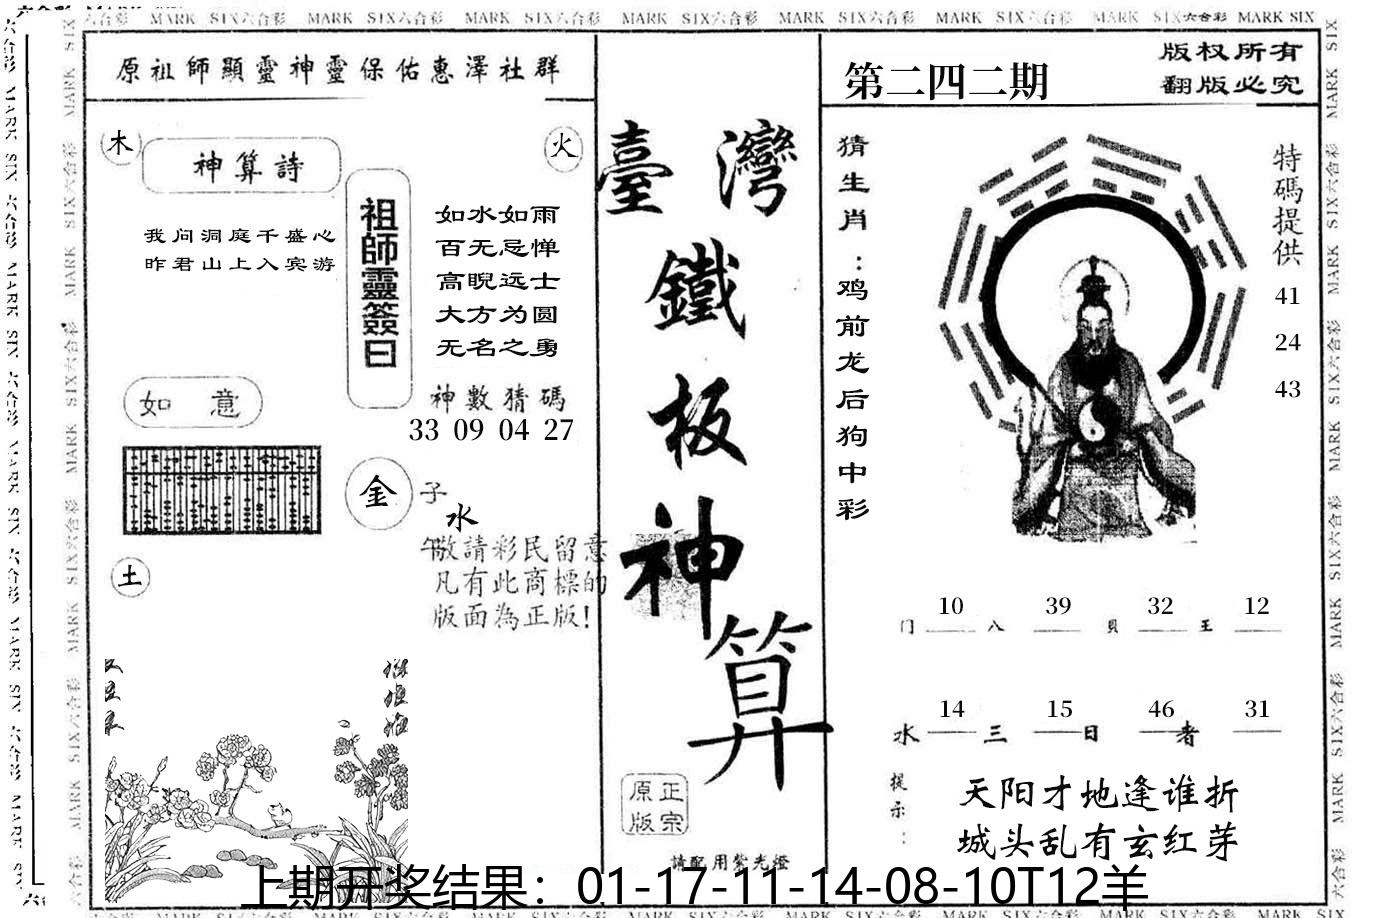 MARK SIX六合彩 MARK SIX六合彩 MARK SIX六合彩 MARK SIX六合彩 MARK SIX六合彩 MARK SIX六合彩 MARK SIX六合彩 MARK SIX
原祖師顯靈神靈保佑惠澤社群
木
神算詩
火
我问洞庭千盛心
昨君山上入宾游
祖師靈簽曰
如水如雨
百无忌惮
高睨远士
大方为圆
无名之勇
如意
神數猜碼
33 09 04 27
金
子
水
午
敬請彩民留意
凡有此商標的
版面為正版!
土
臺灣
鐵
板
神
算
正宗
原版
請配用紫光燈
第二四二期
版权所有
翻版必究
猜生肖：鸡前龙后狗中彩
特碼提供
41
24
43
10 39 32 12
门 八 貝 王
14 15 46 31
水 三 日 者
提示：
天阳才地逢谁折
城头乱有玄红芽
上期开奖结果：01-17-11-14-08-10T12羊